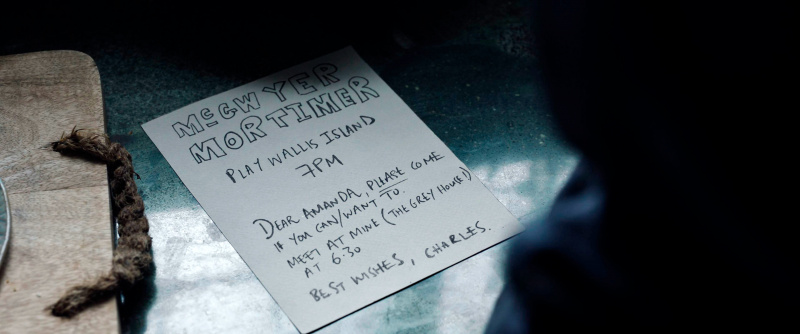 McGWYER
MORTIMER
PLAY WALLIS ISLAND
7PM
DEAR AMANDA, PLEASE COME
IF YOU CAN/WANT TO.
MEET AT MINE (THE GREY HOUSE)
AT 6:30
BEST WISHES, CHARLES.